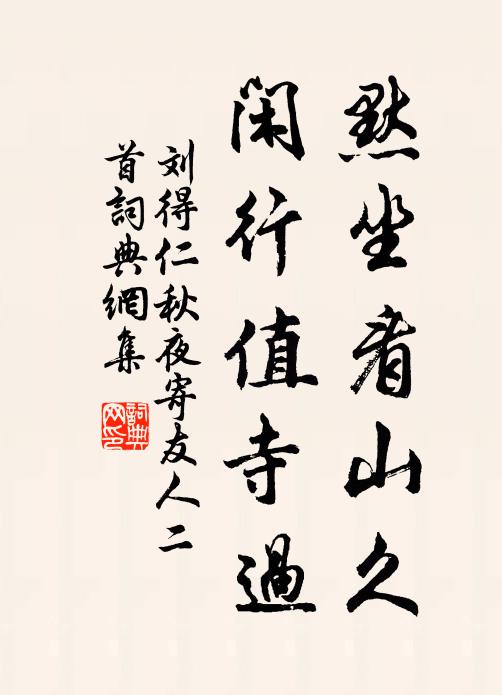 默坐看山久
闲行值寺過
刘得仁秋夜寄友人二
首詞典網集
詞典网印